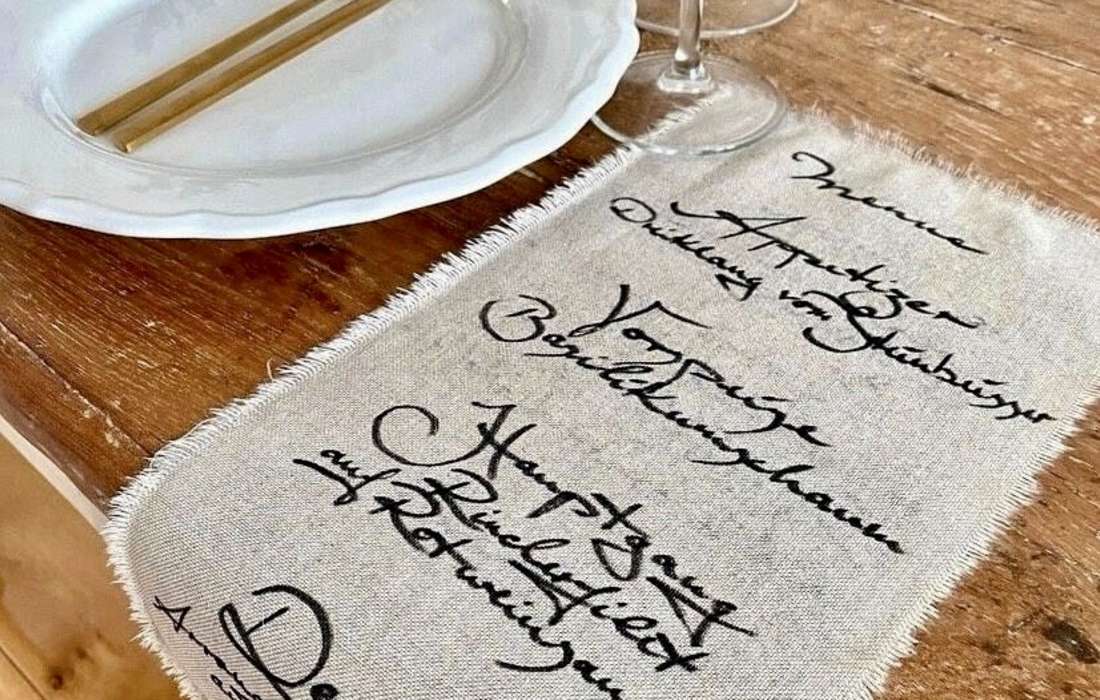 Menue
Appetizer
Dreiklang vom
Vorspeise
Basilikumschaum
Hauptgang
Rinderfilet
auf Rotwein
De